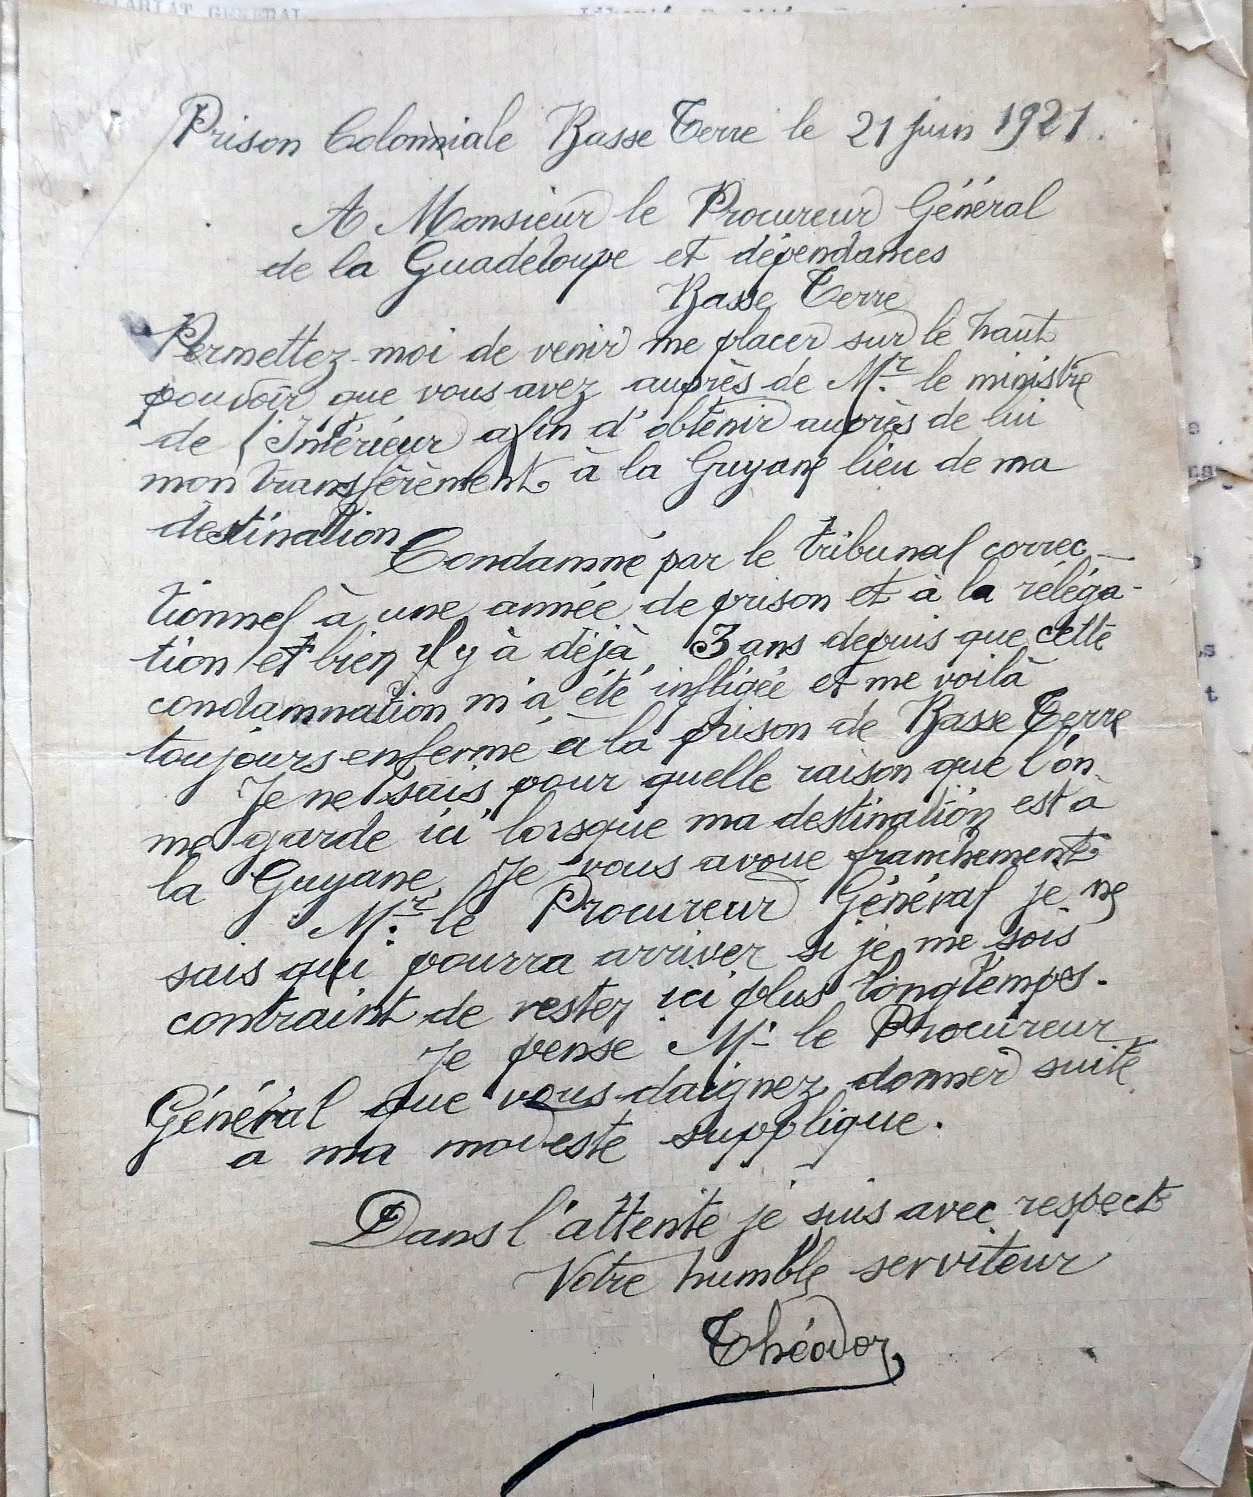 Prison Colonniale Basse Terre le 21 juin 1921.
A Monsieur le Procureur Général
de la Guadeloupe et dépendances
Basse Terre
Permettez-moi de venir me placer sur le haut
pouvoir que vous avez auprès de Mr. le ministre
de l'Intérieur afin d'obtenir auprès de lui
mon transfèrement à la Guyane lieu de ma
destination
Condamné par le tribunal correc-
tionnel à une année de prison et à la réléga-
tion et bien il y à déjà 3 ans depuis que cette
condamnation m'a été infligée et me voilà
toujours enfermé à la prison de Basse Terre
Je ne sais pour quelle raison que l'on
me garde ici lorsque ma destination est a
la Guyane. Je vous avoue franchement
Mr. le Procureur Général je ne
sais qui pourra arriver si je me sois
contraint de rester ici plus longtemps.
Je pense Mr le Procureur
Général que vous daignez donner suite
a ma modeste supplique.
Dans l'attente je suis avec respect
Votre humble serviteur
Théodor